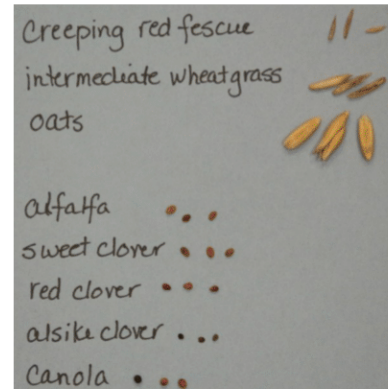 Creeping red fescue
intermediate wheatgrass
oats
alfalfa
sweet clover
red clover
alsike clover
Canola